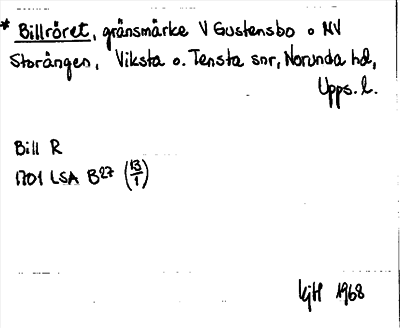 * Billröret, gränsmärke V Gustensbo o NV
Storängen, Viksta o. Tensta snr, Norunda hd,
Upps. l.
Bill R
1701 LSA B27 (13/1)
GH 1968